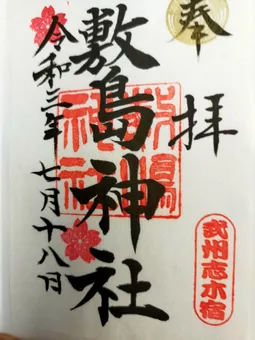 奉拝
敷島神社
敷島神社
武州志木宿
令和三年七月十八日